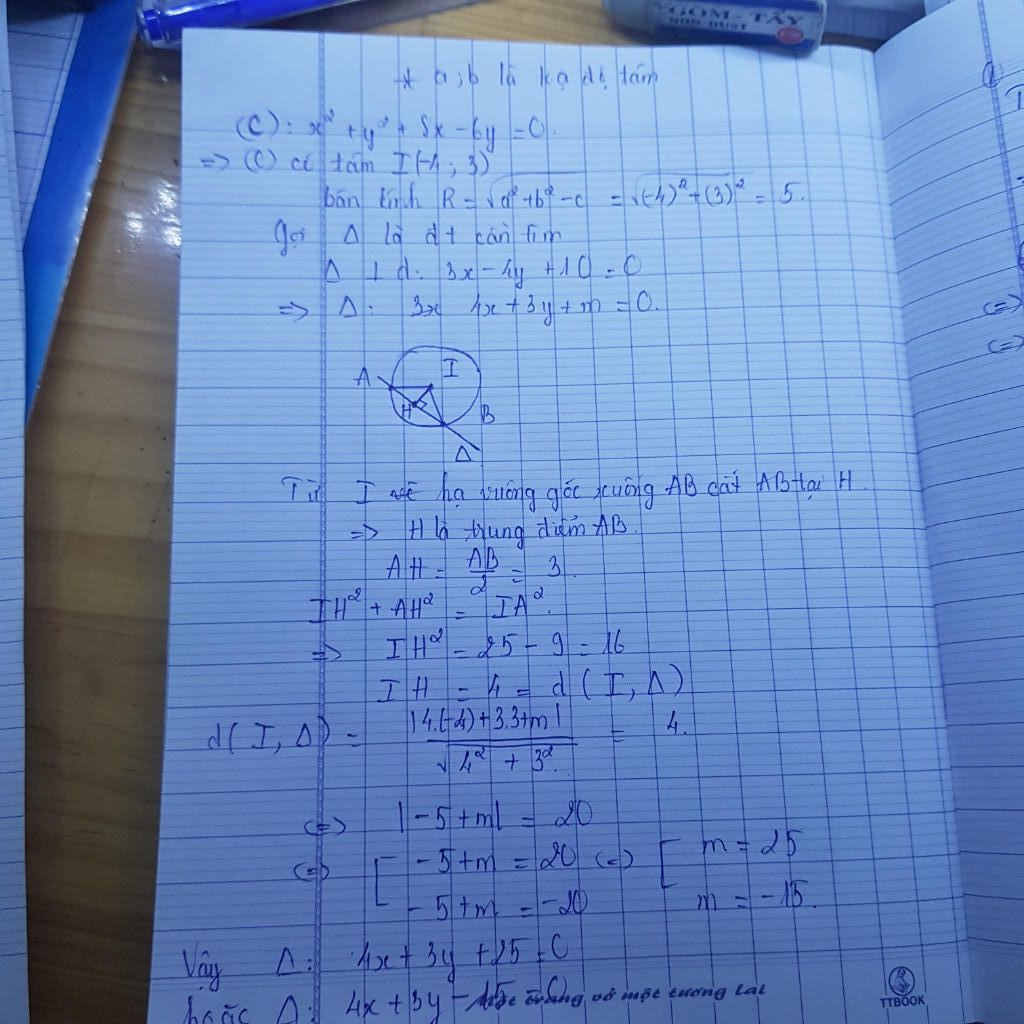 GÔM-TẨY
NON DUST
* a, b là toạ độ tâm
(C): x² + y² + 8x - 6y = 0.
=> (C) có tâm I(-4; 3)
bán kính R = √a² + b² - c = √(-4)² + (3)² = 5.
Gọi Δ là đt cần tìm
Δ ⊥ d: 3x - 4y + 10 = 0
=> Δ: 3x 4x + 3y + m = 0.
A I
H B
Δ
Từ I vẽ hạ vuông góc xuống AB cắt AB tại H.
=> H là trung điểm AB.
AH = AB/2 = 3
IH² + AH² = IA².
=> IH² = 25 - 9 = 16
IH = 4 = d(I, Δ)
d(I, Δ) = |4.(-4) + 3.3 + m| / √4² + 3² = 4.
<=> |-5 + m| = 20
<=> [ -5 + m = 20 <=> [ m = 25
-5 + m = -20 m = -15.
Vậy Δ: 4x + 3y + 25 = 0
hoặc Δ: 4x + 3y - 15 = 0
trang vở một tương lai
TTBOOK